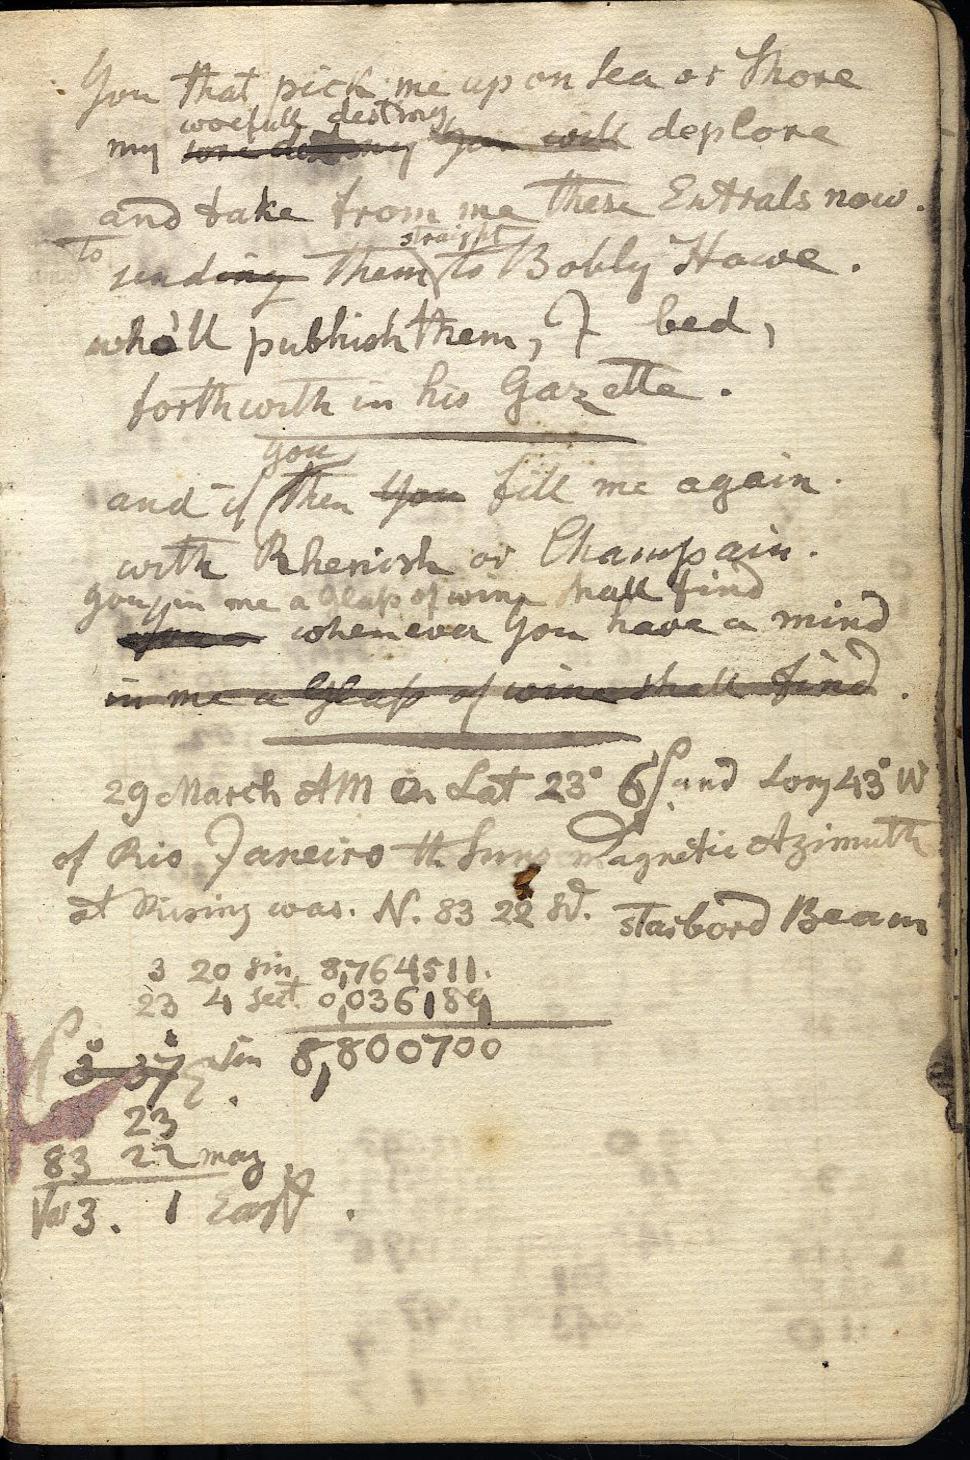 You that pick me up on Sea or Shore
woefull destiny
my sore destiny you will deplore
and take from me these Entrals now.
to straight
sending them to Bobby Howe.
who'll publish them, I bed,
forthwith in his Gazette.
you
and if then you fill me again.
with Rhenish or Champain.
you in me a Glass of wine shall find
whenever you have a mind
in me a Glass of wine shall find.
29 March AM In Lat 23° 6' S and Long 43° W
of Rio Janeiro th Suns magnetic Azimuth
at Rising was. N. 83 22 starbord Beam
3 20 sin 8,764511.
23 4 sect 0,036189
3° 37' sin 8,800700
23
83 22 mag
Var 3. 1 East.